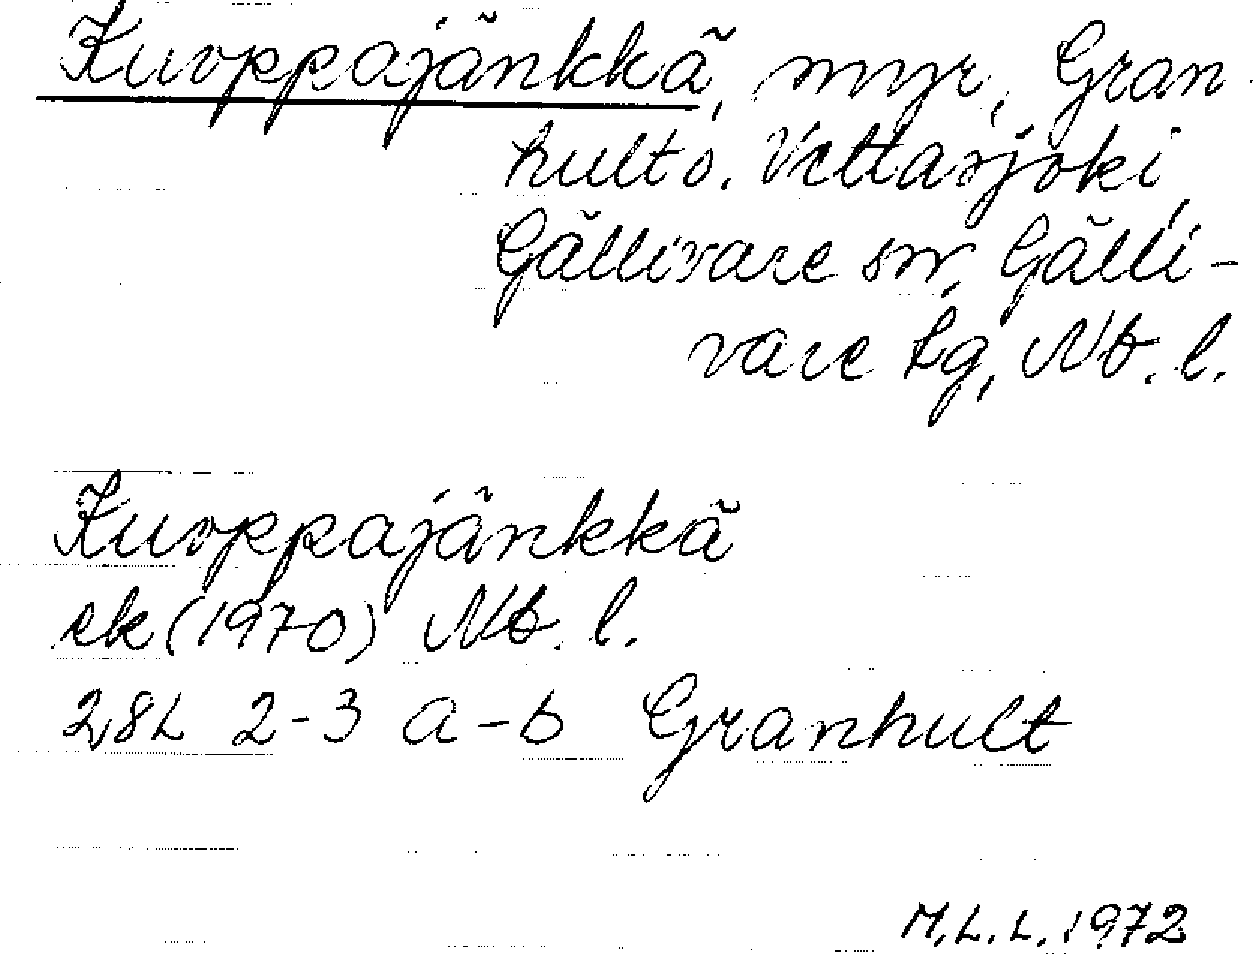 Kuoppajänkkä, myr, Gran-
hult o. Vettasjoki,
Gällivare sn, Gälli-
vare lg, Nb. l.
Kuoppajänkkä
ek (1970) Nb. l.
28L 2-3 a-b Granhult
M.L.L. 1972